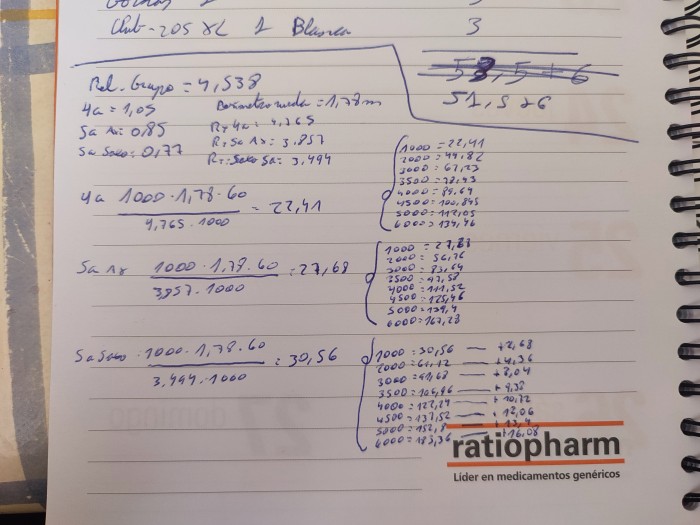 205 XL 1 Blanca 3
58,5 + 6
51,5 + 6
Rel. Grupo = 4,538
4a = 1,05
5a Ns: 0,85
5a Saxo: 0,77
= 1,78m
RT 4a = 4,765
RT 5a Ns: 3,857
RT: Saxo 5a: 3,494
4a 1000 · 1,78 · 60 = 22,41
4,765 · 1000
1000 = 22,41
2000 = 44,82
3000 = 67,23
3500 = 78,43
4000 = 89,64
4500 = 100,845
5000 = 112,05
6000 = 134,46
5a Ns 1000 · 1,78 · 60 = 27,68
3,857 · 1000
1000 = 27,88
2000 = 56,76
3000 = 83,64
3500 = 97,58
4000 = 111,52
4500 = 125,46
5000 = 139,4
6000 = 167,28
5a Saxo 1000 · 1,78 · 60 = 30,56
3,494 · 1000
1000 = 30,56 — +2,68
2000 = 61,12 — +4,36
3000 = 91,68 — + 8,04
3500 = 106,96 — + 9,38
4000 = 122,24 — + 10,72
4500 = 137,52 — + 12,06
5000 = 152,8 — + 13,4
6000 = 183,36 — +16,08
ratiopharm
Líder en medicamentos genéricos